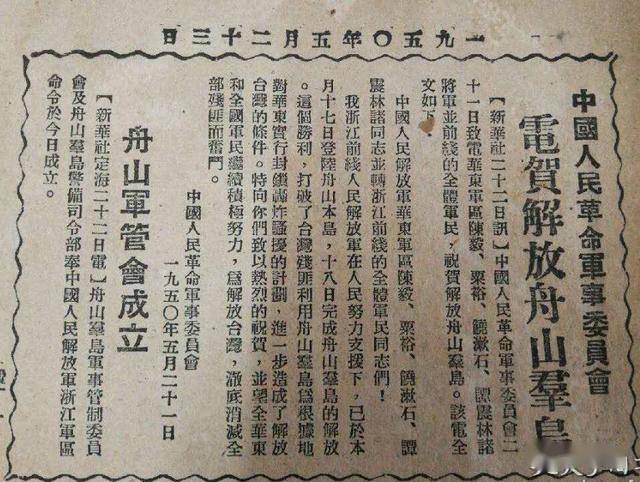 一九五〇年五月二十三日
中國人民革命軍事委員會
電賀解放舟山羣島
【新華社二十二日訊】中國人民革命軍事委員會二
十一日致電華東軍區陳毅、粟裕、饒漱石、譚震林諸
將軍並前綫的全體軍民，祝賀解放舟山羣島。該電全
文如下：
中國人民解放軍華東軍區陳毅、粟裕、饒漱石、譚
震林諸同志並轉浙江前綫的全體軍民同志們！
我浙江前綫人民解放軍在人民努力支援下，已於本
月十七日登陸舟山本島，十八日完成舟山羣島的解放
。這個勝利，打破了台灣殘匪利用舟山羣島爲根據地
對華東實行封鎖轟炸騷擾的計劃，進一步造成了解放
台灣的條件。特向你們致以熱烈的祝賀，並望全華東
和全國軍民繼續積極努力，爲解放台灣，澈底消滅全
部殘匪而奮鬥。
中國人民革命軍事委員會
一九五〇年五月二十一日
舟山軍管會成立
【新華社定海二十二日電】舟山羣島軍事管制委員
會及舟山羣島警備司令部奉中國人民解放軍浙江軍區
命令於今日成立。